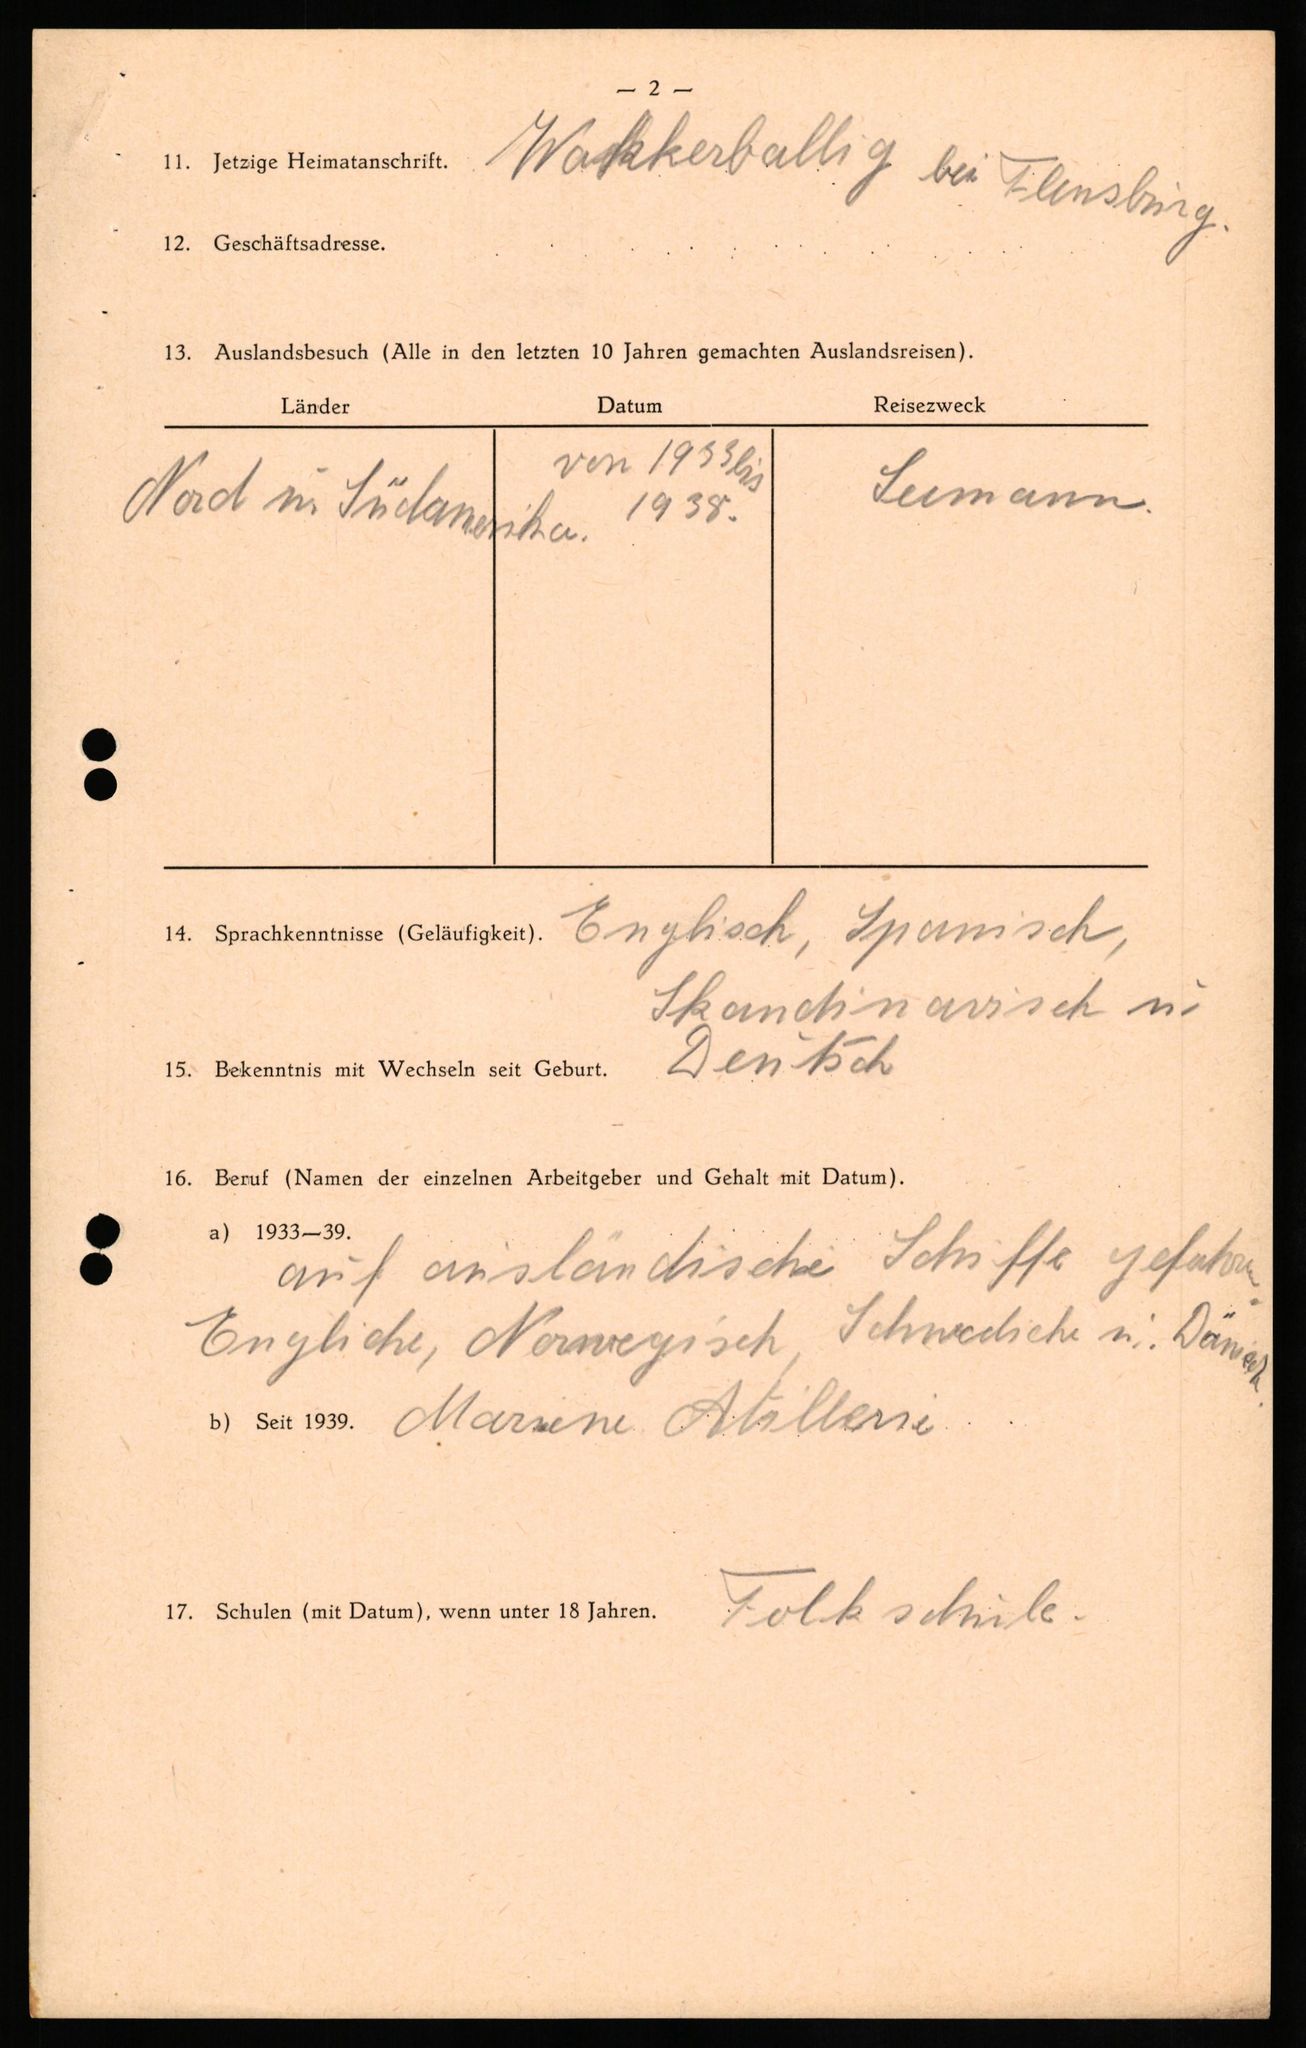 — 2 —
11. Jetzige Heimatanschrift. Wakkerballig bei Flensburg.
12. Geschäftsadresse.
13. Auslandsbesuch (Alle in den letzten 10 Jahren gemachten Auslandsreisen).
Länder Datum Reisezweck
Nord u Südamerika. von 1933 bis 1938. Seemann.
14. Sprachkenntnisse (Geläufigkeit). Englisch, Spanisch,
Skandinavisch u
15. Bekenntnis mit Wechseln seit Geburt. Deutsch
16. Beruf (Namen der einzelnen Arbeitgeber und Gehalt mit Datum).
a) 1933—39.
auf ausländische Schiffe gefahren.
Engliche, Norwegisch, Schwediche u. Dänisch.
b) Seit 1939. Mariene Atillerie
17. Schulen (mit Datum), wenn unter 18 Jahren. Folkschule.